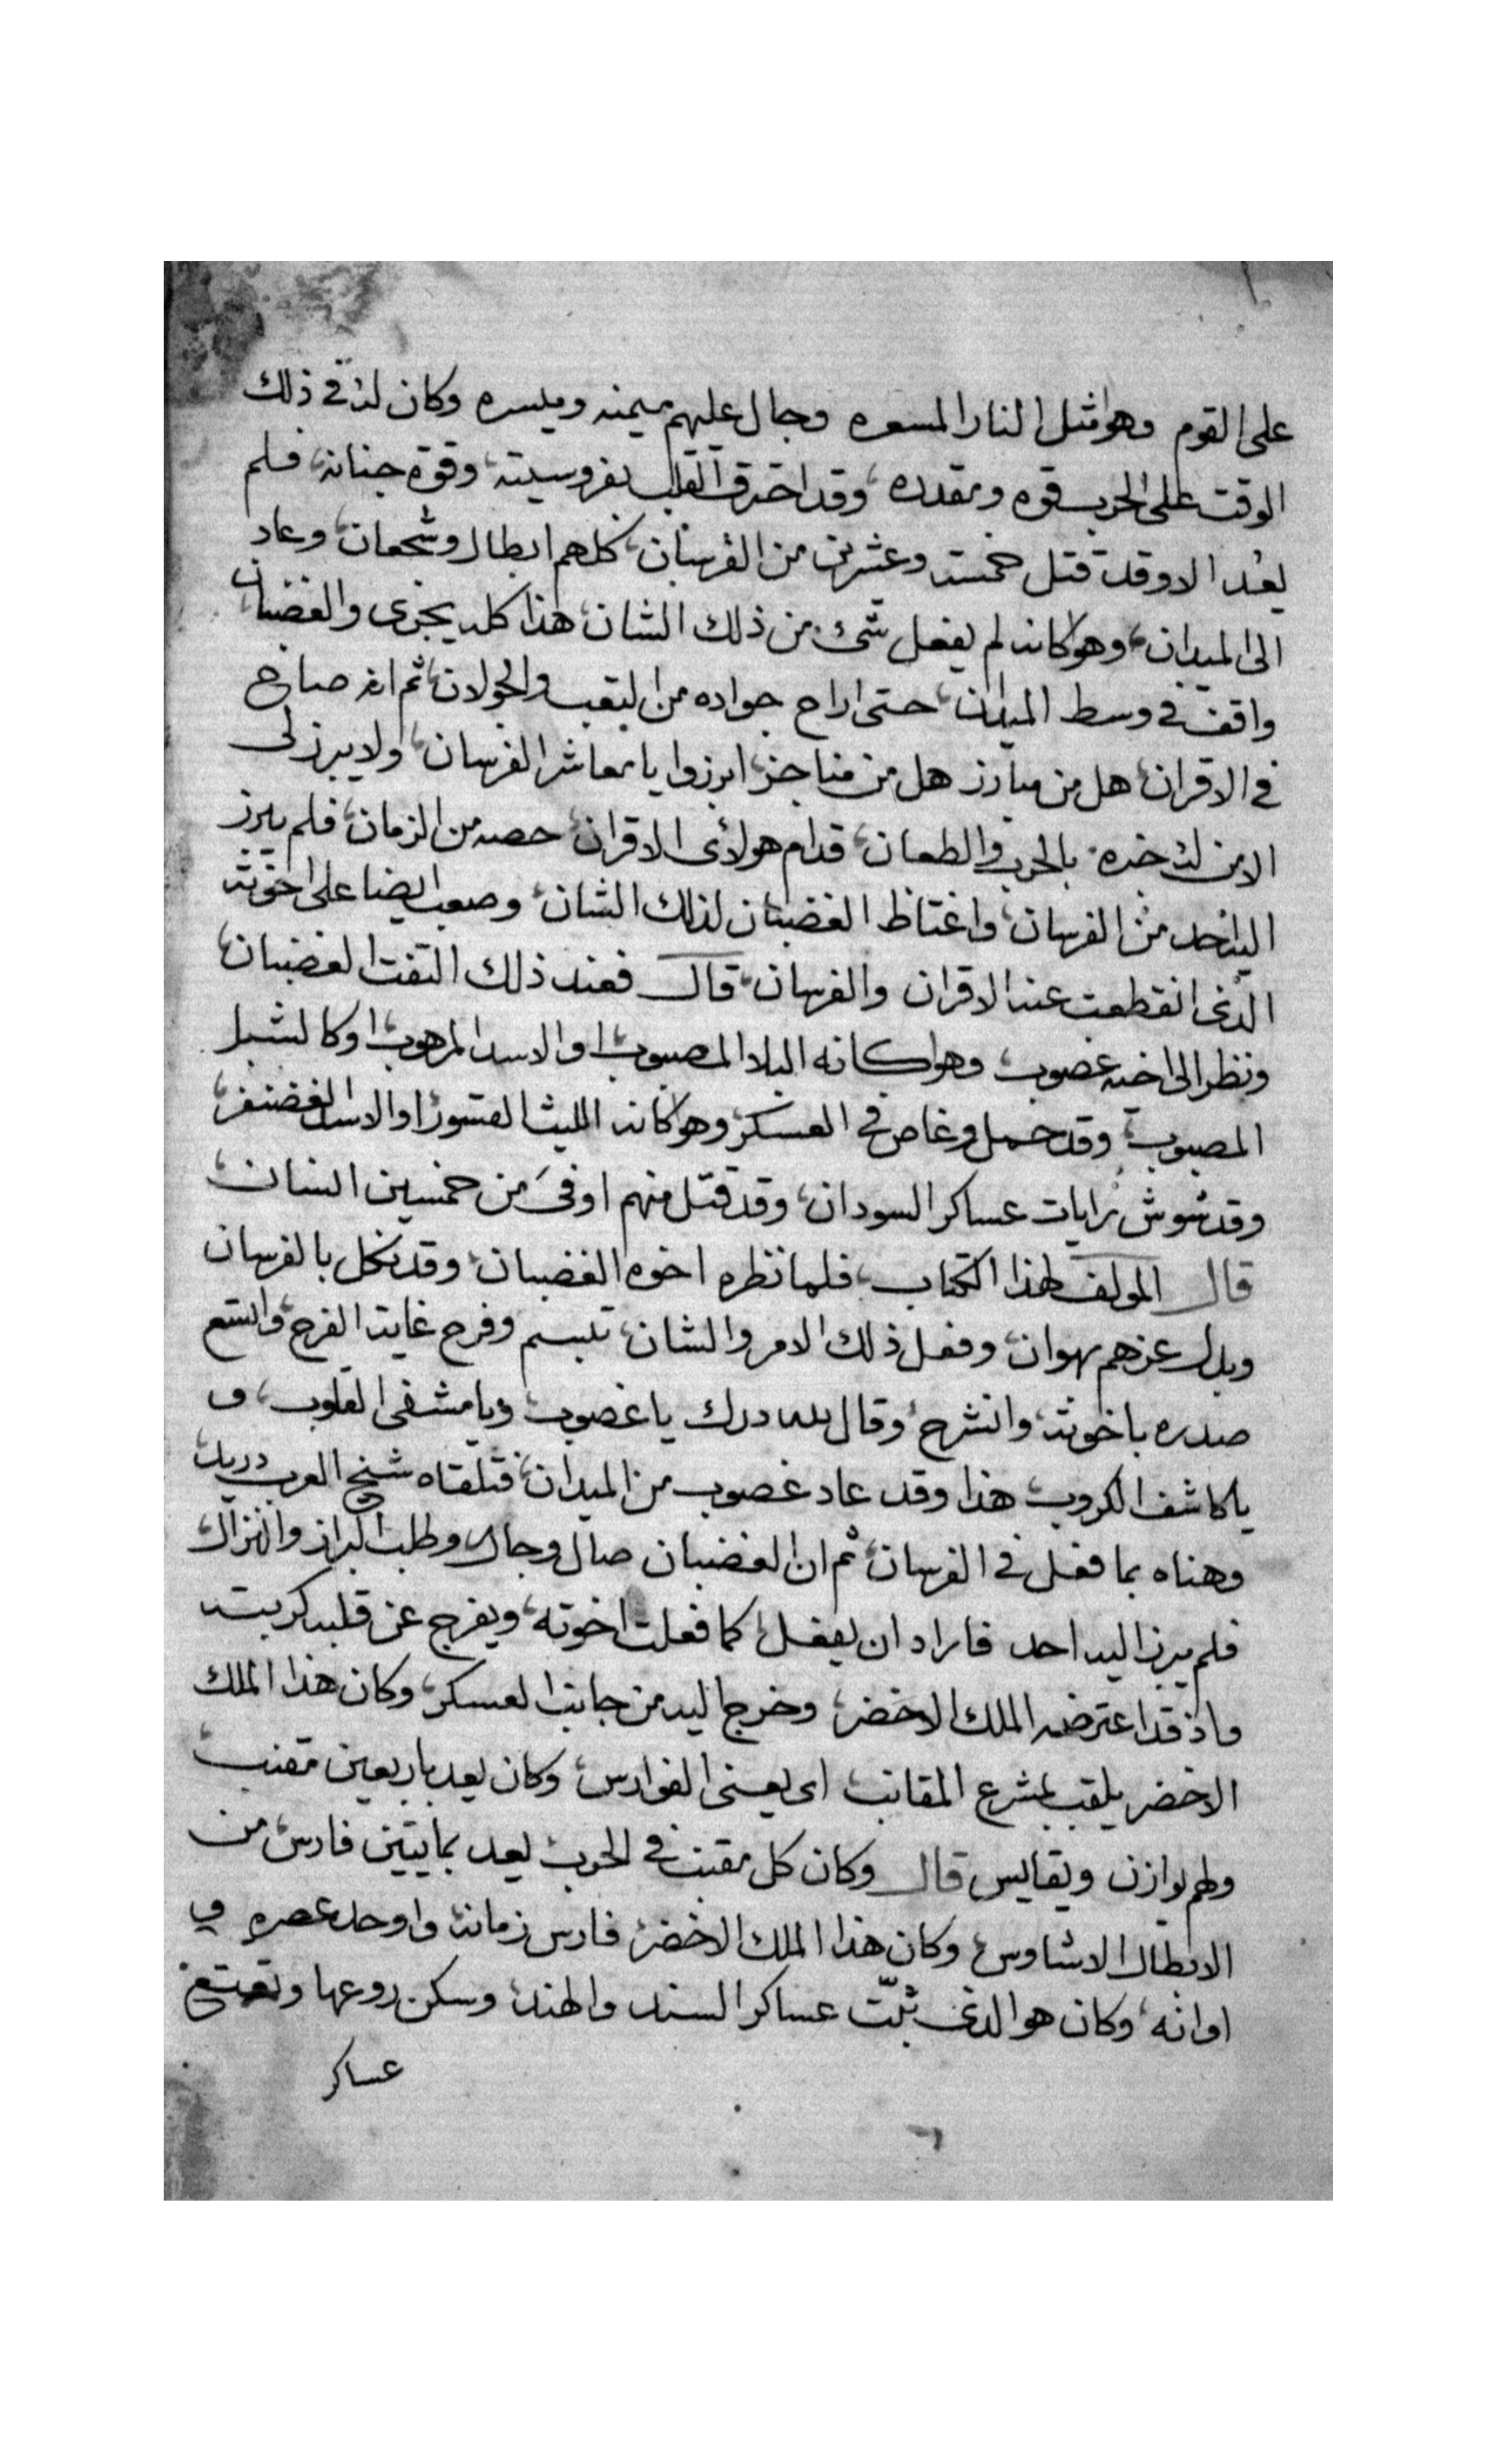 على القوم وهو مثل النار المسعره وجال عليهم ميمنه وميسره وكان له في ذلك
الوقت على الحرب قوه ومقدره، وقد اخترق القلب بفروسيته، وقوة جنانه، فلم
يعد الا وقد قتل خمسة وعشرين من الفرسان، كلهم ابطال وشجعان، وعاد
الى الميدان، وهو كانه لم يفعل شئ من ذلك الشان، هذا كله يجرى والغضبان
واقف في وسط الميدان، حتى اراح جواده من التعب والجولان، ثم انه صاح
في الاقران، هل من مبارز هل من مناجز، ابرزوا يا معاشر الفرسان، ولا يبرز لى
الا من له خبره بالحرب والطعان، قدام هولائى الاقران، حصه من الزمان، فلم يبرز
اليه احد من الفرسان، واغتاظ الغضبان لذلك الشان، وصعب ايضا على اخوته
الذى انقطعت عنه الاقران والفرسان، قال فعند ذلك التفت الغضبان،
ونظر الى اخيه غصوب، وهو كانه البلا المصبوب، او الاسد المرهوب، او كالشبل
المصبوب، وقد حمل وغاص في العسكر، وهو كانه الليث القسور، او الاسد الغضنفر،
وقد شوش رايات عساكر السودان، وقد قتل منهم اوفى من خمسين انسان،
قال المولف لهذا الكتاب، فلما نظره اخوه الغضبان، وقد نكل بالفرسان
وبدل عزهم بهوان، وفعل ذلك الامر والشان، تبسم وفرح غاية الفرح، واتسع
صدره باخوته، وانشرح، وقال لله درك يا غصوب، ويا مشفى القلوب، و
يا كاشف الكروب، هذا وقد عاد غصوب من الميدان، فتلقاه شيخ العرب دريد،
وهناه بما فعل في الفرسان، ثم ان الغضبان صال وجال، وطلب البراز والنزال،
فلم يبرز اليه احد فاراد ان يفعل، كما فعلت اخوته، ويفرج عن قلبه كربته
واذ قد اعترضه الملك الاخضر، وخرج اليه من جانب العسكر، وكان هذا الملك
الاخضر يلقب بمشرع المقانب، اى يعنى الفوارس، وكان يعد باربعين مقنب،
ولهم يوازن ويقايس قال وكان كل مقنب في الحرب، يعد بمايتين فارس، من
الابطال الاشاوس، وكان هذا الملك الاخضر، فارس زمانه، واوحد عصره في
اوانه، وكان هو الذى ثبّت عساكر السند والهند، وسكن روعها
عساكر